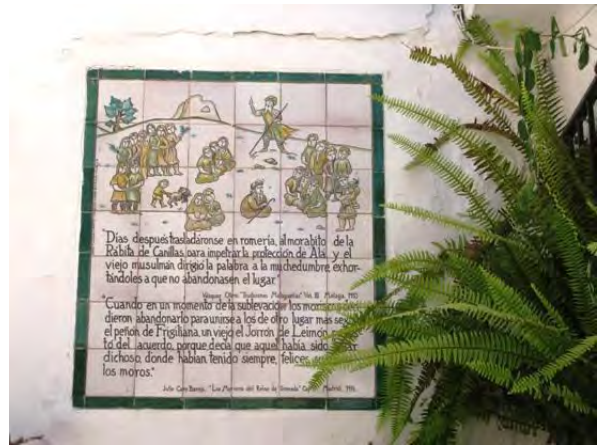 "Días después trasladáronse en romería, al morabito de la
Rábita de Canillas, para impetrar la protección de Alá y el
viejo musulmán dirigió la palabra a la muchedumbre exhor-
tándoles a que no abandonasen el lugar."
Málaga,
"Cuando en un momento de la sublevación los
dieron abandonarlo para unirse a los de otro lugar más
el peñón de Frigiliana, un viejo, el Jorrón de Leimón,
tó del acuerdo, porque decía que aquel había sido
dichoso, donde habían tenido siempre, felices
los moros."
Julio Caro Baroja. "Los Moriscos del Reino de Granada" Madrid,